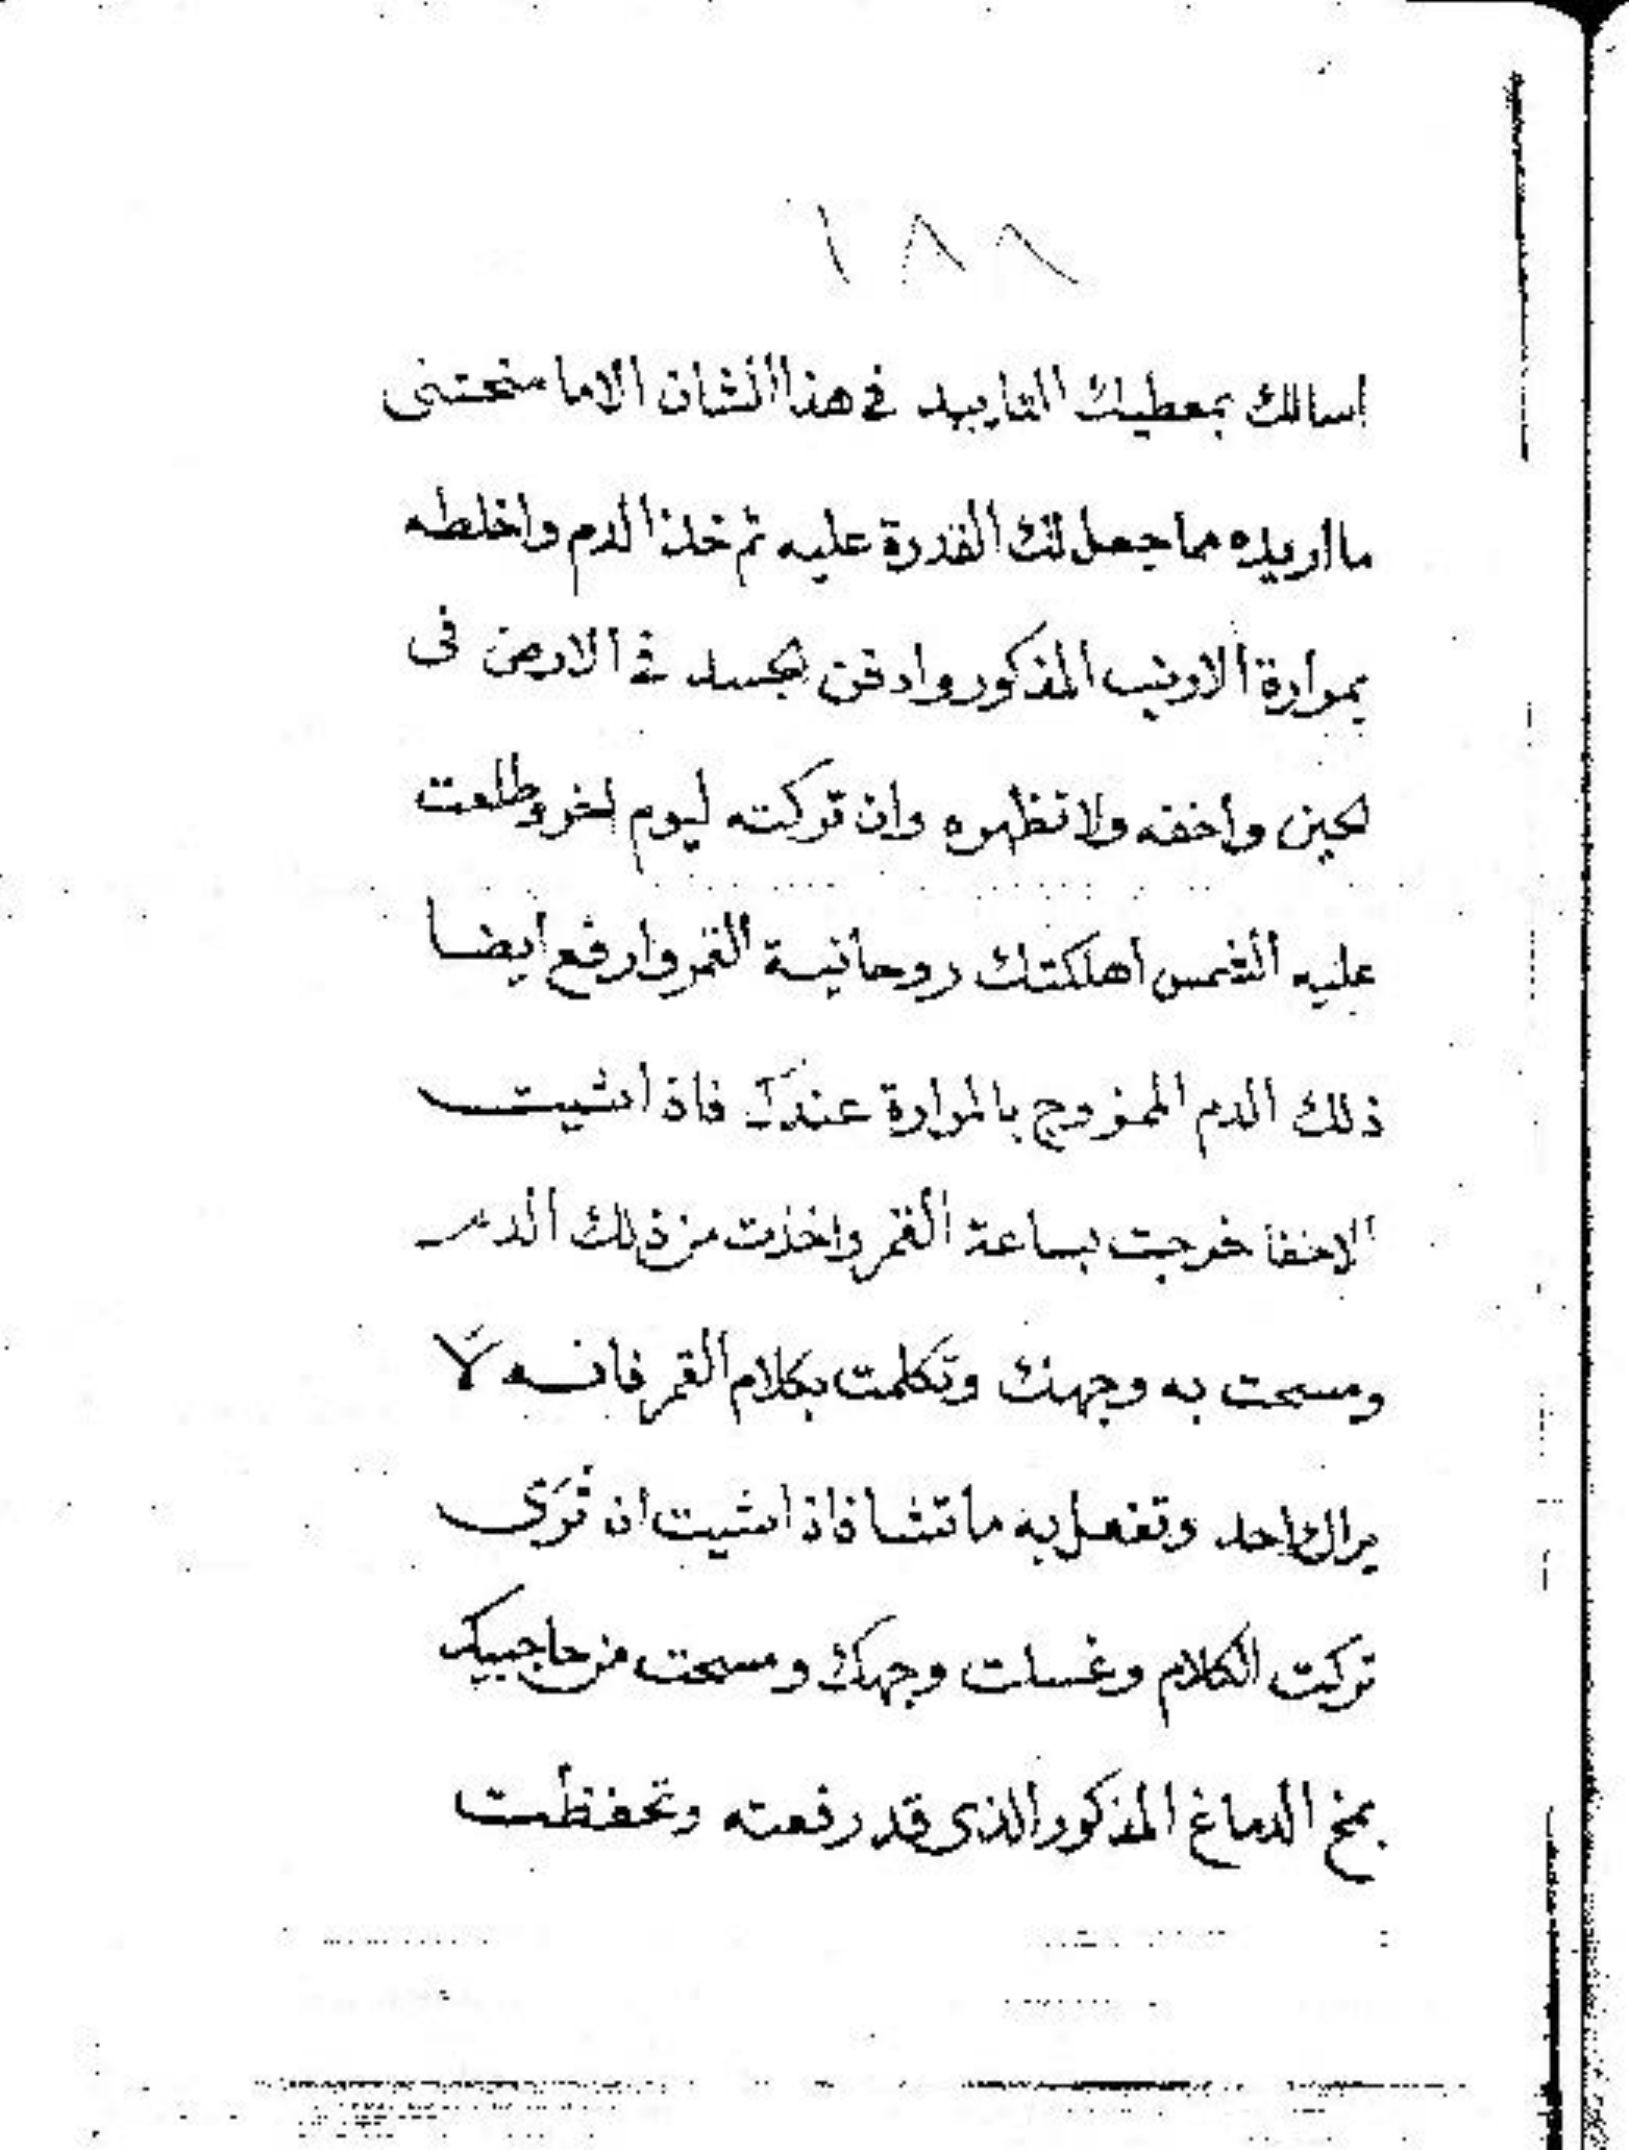 ١٨٨
اسالك بمعطيك التاييد في هذا الشان الاما منحتنى
ما اريده مما جعل لك القدرة عليه ثم خذ الدم واخلطه
بمرارة الارنب المذكور وادفن الجسد في الارض فى
الحين واخفه ولا تظهره وان تركته ليوم اخر وطلعت
عليه الشمس اهلكتك روحانية القمر وارفع ايضا
ذلك الدم الممزوج بالمرارة عندك فاذا شيت
الاخفا خرجت بساعة القمر واخذت من ذلك الدم
ومسحت به وجهك وتكلمت بكلام القمر فانه لا
يراك احد وتفعل به ما تشا فاذا شيت ان ترى
تركت الكلام وغسلت وجهك ومسحت من حاجبيك
بمخ الدماغ المذكور الذى قد رفعته وتحفظت